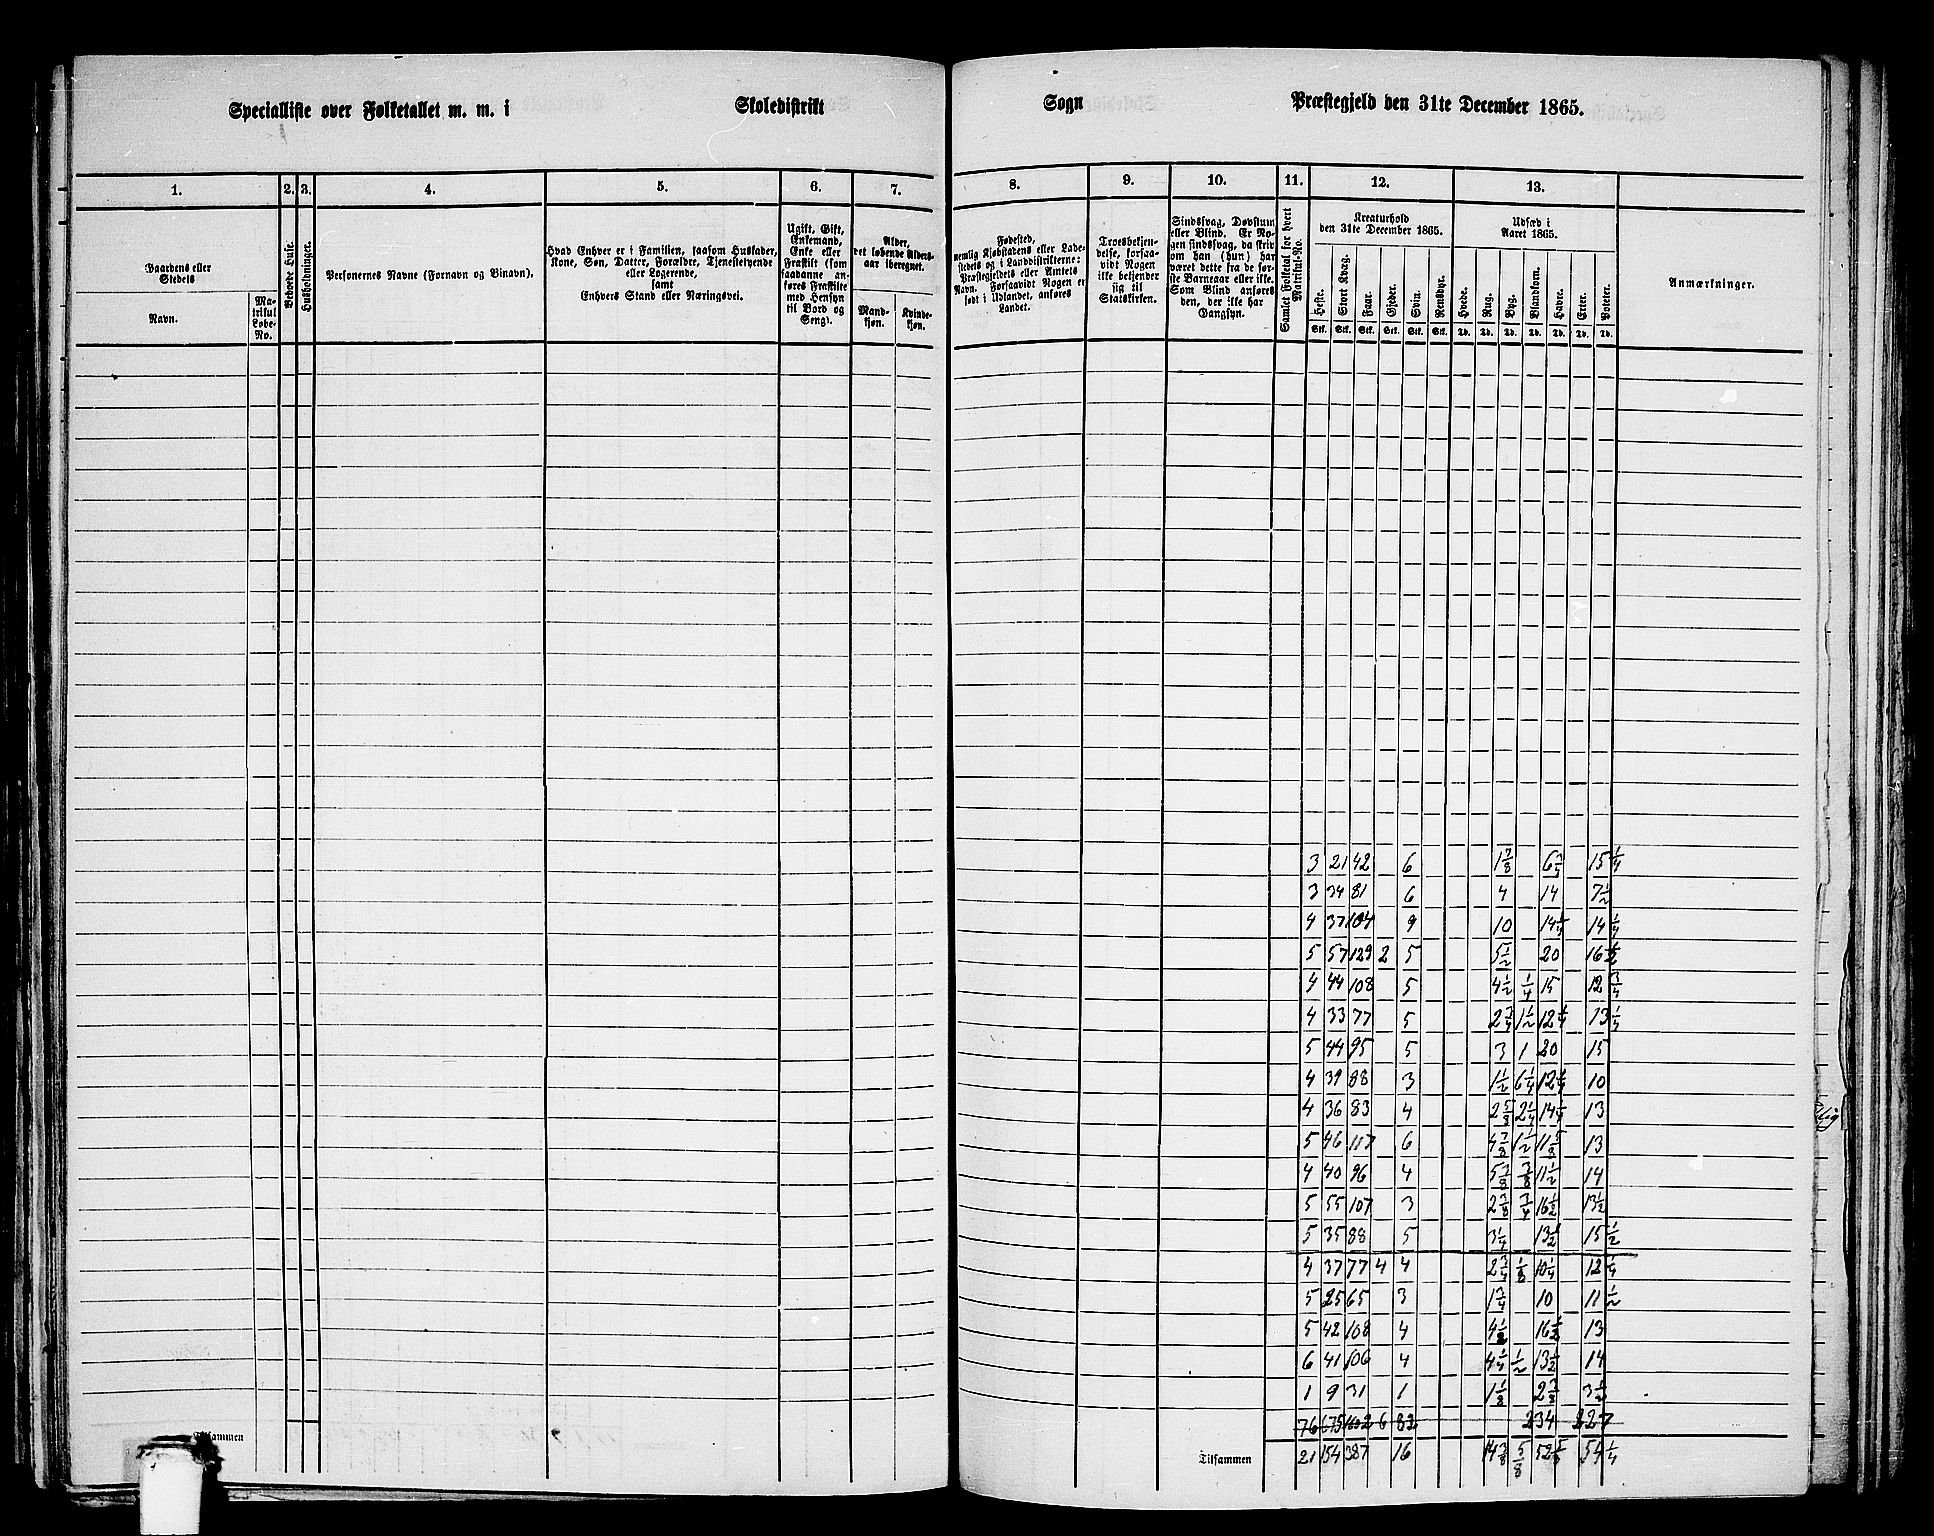 Specialliste over Folketallet m. m. i Skoledistrikt Sogn Præstegjeld den 31te December 1865.
1. 2. 3. 4. 5. 6. 7. 8. 9. 10. 11. 12. 13.
Gaardens eller
Stedets
Navn.
Ma-
trikul
Løbe-
No.
Beboede Huse.
Husholdninger.
Personernes Navne (Fornavn og Binavn).
Hvad Enhver er i Familien, saasom Husfader,
Kone, Søn, Datter, Forældre, Tjenestetyende
eller Logerende,
samt
Enhvers Stand eller Næringsvei.
Ugift, Gift,
Enkemand,
Enke eller
Fraskilt (som
saadanne an-
føres Fraskilte
med Hensyn
til Bord og
Seng).
Alder,
det løbende Alders-
aar iberegnet.
Mand-
kjøn.
Kvinde-
kjøn.
Fødested,
nemlig Kjøbstadens eller Lade-
stedets og i Landdistrikterne:
Præstegjeldets eller Amtets
Navn. Forsaavidt Nogen er
født i Udlandet, anføres
Landet.
Troesbekjen-
delse, forsaa-
vidt Nogen
ikke bekjender
sig til
Statskirken.
Sindssvag, Døvstum
eller Blind. Er No-
gen sindssvag, da skriv
om han (hun) har
været dette fra de før-
ste Barneaar eller ikke.
Som Blind anføres
den, der ikke har
Gangsyn.
Samlet Folketal for hvert
Matrikul-No.
Kreaturhold
den 31te December 1865.
Heste. Stort Kvæg. Faar. Gjeder. Svin. Rensdyr.
Stk. Stk. Stk. Stk. Stk. Stk.
Udsæd i
Aaret 1865.
Hvede. Rug. Byg. Blandkorn. Havre. Erter. Poteter.
Td. Td. Td. Td. Td. Td. Td.
Anmærkninger.
3 21 42 6 1 7/8 6 3/4 15 1/4
3 34 81 6 4 14 7 1/2
4 37 104 9 10 14 1/4 14 1/4
5 57 129 2 5 5 1/2 20 16
4 44 108 5 4 1/2 1/4 15 12 3/4
4 33 77 5 2 3/4 1 1/2 12 1/4 13 1/4
5 44 95 5 3 1 20 15
4 39 88 3 1 1/2 6 1/4 12 1/4 10
4 36 83 4 2 5/8 2 1/4 14 1/4 13
5 46 117 6 4 7/8 1 1/2 11 5/8 13
4 40 96 4 5 3/8 3/8 11 1/2 14
5 55 107 3 2 3/8 3/4 16 1/2 13 1/2
5 35 88 5 3 1/4 13 1/2 15 1/2
4 37 77 4 4 2 3/4 1/8 10 1/4 12 1/4
5 25 65 3 1 3/4 10 11 1/2
5 42 108 4 4 1/2 16 1/2 13
6 41 106 4 4 1/4 1/2 13 1/2 14
1 9 31 1 1 1/8 2 3/8 3 1/2
76 675 1602 6 82 234 227
Tilsammen
Tilsammen 21 154 387 16 14 3/8 5/8 52 5/8 54 1/4